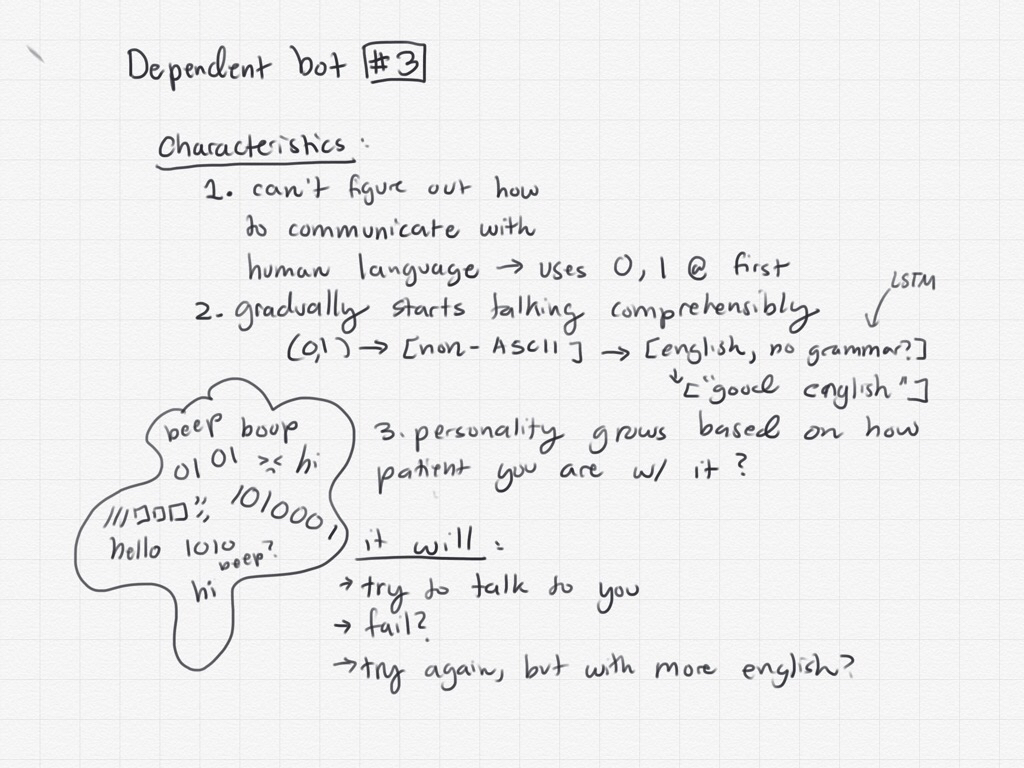 Dependent bot #3
Characteristics:
1. can't figure out how
to communicate with
human language → uses 0, 1 @ first
LSTM
2. gradually starts talking comprehensibly
(0,1) → [non-ASCII] → [english, no grammar?]
↳ ["good english"]
3. personality grows based on how
patient you are w/ it?
beep boop
01 01 >< hi
101000,
hello 1010
beep?
hi
it will:
→ try to talk to you
→ fail?
→ try again, but with more english?